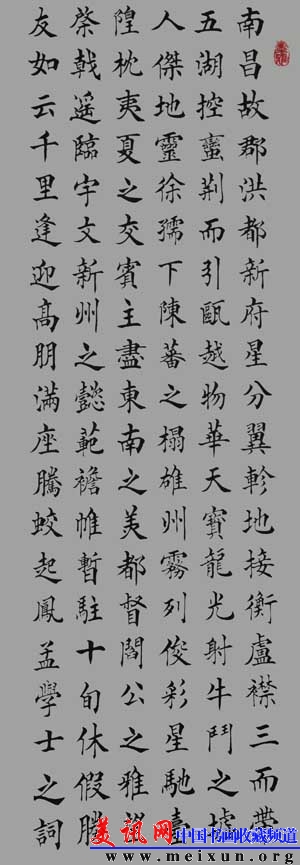 南昌故郡洪都新府星分翼軫地接衡盧襟三而帶
五湖控蠻荆而引甌越物華天寶龍光射牛鬥之墟
人傑地靈徐孺下陳蕃之榻雄州霧列俊彩星馳臺
隍枕夷夏之交賓主盡東南之美都督閻公之雅望
棨戟遥臨宇文新州之懿範襜帷暫駐十旬休假勝
友如云千里逢迎高朋滿座騰蛟起鳳孟學士之詞
美訊網 中国书画收藏频道
www.meixun.org